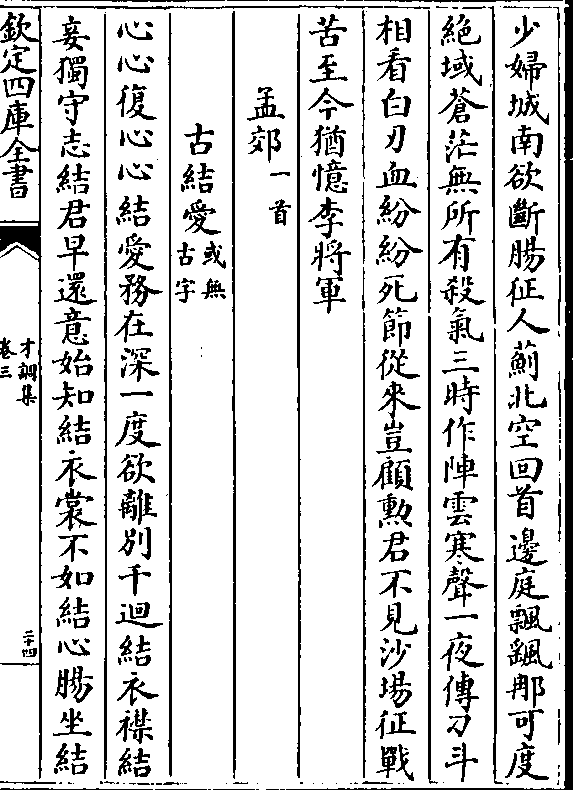 少婦城南欲斷腸征人薊北空回首邊庭飄颻那可度
絶域蒼茫無所有殺氣三時作陣雲寒聲一夜傳刀斗
相看白刃血紛紛死節從來豈顧勲君不見沙場征戰
苦至今猶憶李將軍
孟郊一首
古結愛或無古字
心心復心心結愛務在深一度欲離別千迴結衣襟結
妾獨守志結君早還意始知結衣裳不如結心腸坐結
欽定四庫全書
才調集
卷三
二十四